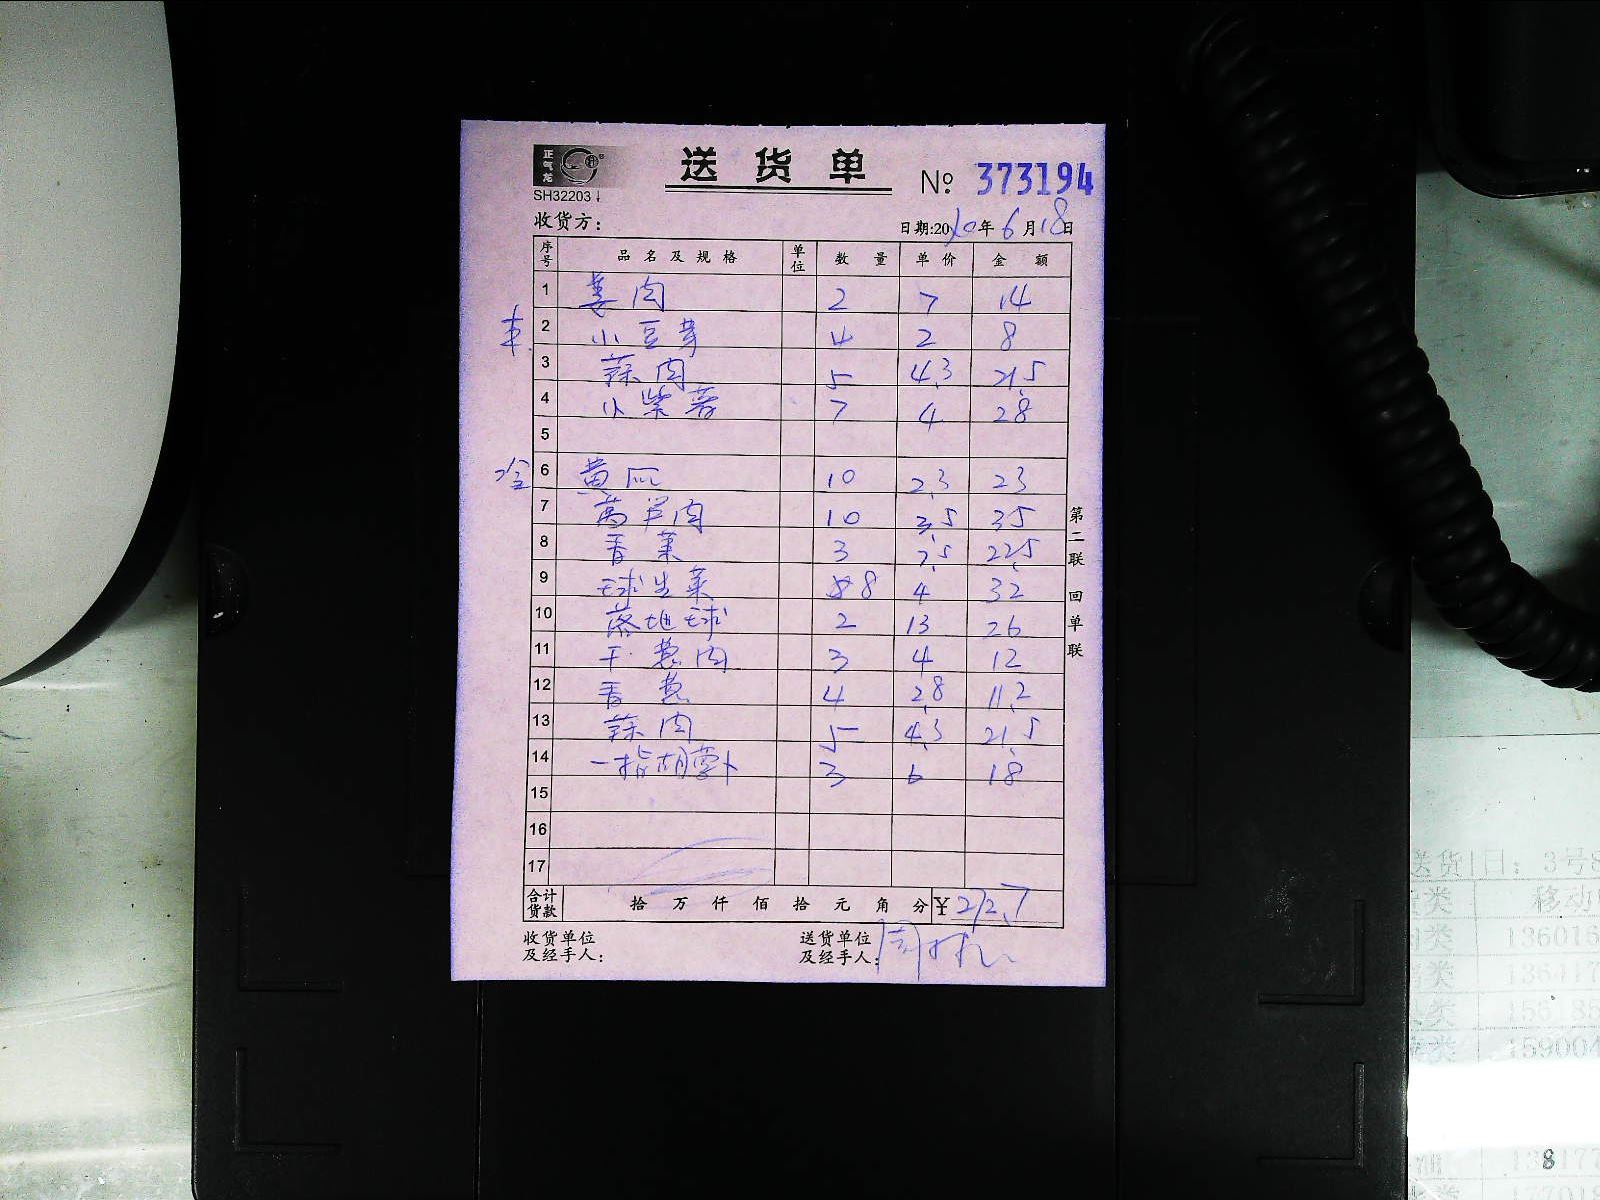 正气龙
送货单
№ 373194
SH32203
收货方： 日期:2020年6月18日
序号 品名及规格 单位 数量 单价 金额
1 姜肉 2 7 14
2 小豆芽 4 2 8
3 蒜肉 5 4.3 21.5
4 小紫蓉 7 4 28
5
冷 6 黄瓜 10 2.3 23
7 莴笋肉 10 3.5 35
8 香菜 3 7.5 22.5
9 球生菜 8 4 32
10 落地球 2 13 26
11 干葱肉 3 4 12
12 香葱 4 2.8 11.2
13 蒜肉 5 4.3 21.5
14 一指胡萝卜 3 6 18
15
16
17
合计货款 拾万仟佰拾元角分 ¥272.7
收货单位及经手人： 送货单位及经手人：
第二联 回单联
送货 日：3号8
移动
类 13601
类 13641
类 1561
类 159004